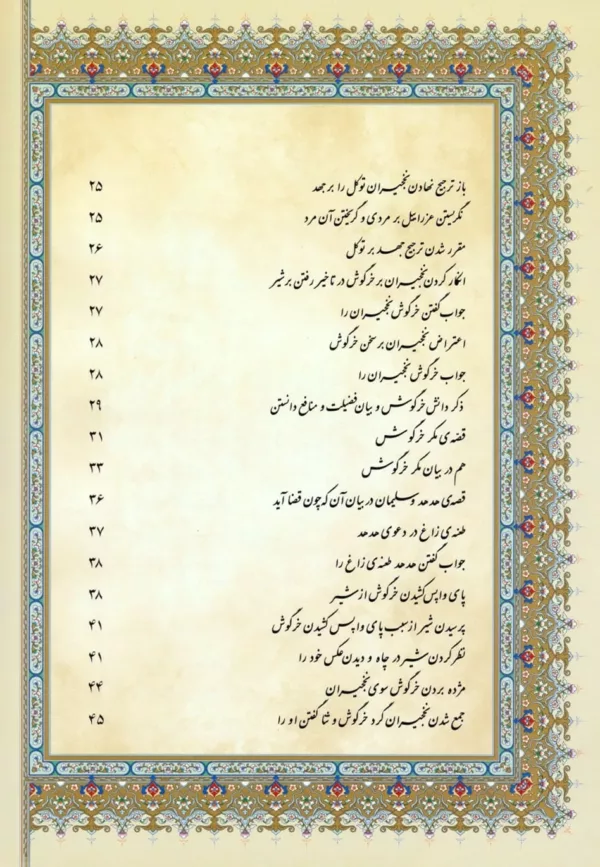 باز ترجیح نهادن نخجیران توکل را بر جهد ۲۵
نگریستن عزراییل بر مردی و گریختن آن مرد ۲۵
مقرر شدن ترجیح جهد بر توکل ۲۶
انکار کردن نخجیران بر خرگوش در تاخیر رفتن بر شیر ۲۷
جواب گفتن خرگوش نخجیران را ۲۷
اعتراض نخجیران بر سخن خرگوش ۲۸
جواب خرگوش نخجیران را ۲۸
ذکر دانش خرگوش و بیان فضیلت و منافع دانستن ۲۹
قصه‌ی مکر خرگوش ۳۱
هم در بیان مکر خرگوش ۳۳
قصه‌ی هدهد و سلیمان در بیان آن که چون قضا آید ۳۶
طعنه‌ی زاغ در دعوی هدهد ۳۷
جواب گفتن هدهد طعنه‌ی زاغ را ۳۸
پای واپس کشیدن خرگوش از شیر ۳۸
پرسیدن شیر از سبب پای واپس کشیدن خرگوش ۴۱
نظر کردن شیر در چاه و دیدن عکس خود را ۴۱
مژده بردن خرگوش سوی نخجیران ۴۴
جمع شدن نخجیران گرد خرگوش و ثنا گفتن او را ۴۵